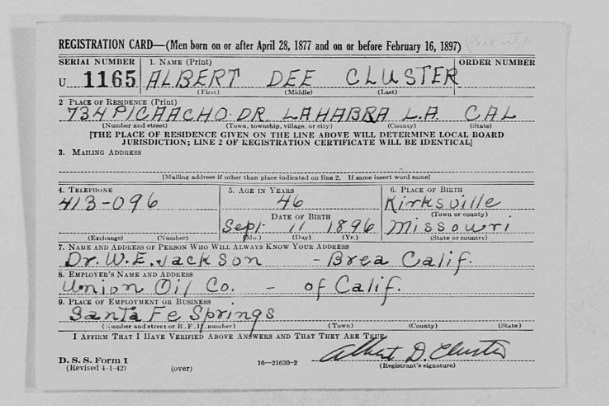 REGISTRATION CARD—(Men born on or after April 28, 1877 and on or before February 16, 1897)
SERIAL NUMBER 1. NAME (Print) ORDER NUMBER
U 1165 ALBERT DEE CLUSTER
(First) (Middle) (Last)
2. PLACE OF RESIDENCE (Print)
734 PICAACHO DR. LAHABRA L.A. CAL
(Number and street) (Town, township, village, or city) (County) (State)
[THE PLACE OF RESIDENCE GIVEN ON THE LINE ABOVE WILL DETERMINE LOCAL BOARD
JURISDICTION; LINE 2 OF REGISTRATION CERTIFICATE WILL BE IDENTICAL]
3. MAILING ADDRESS
[Mailing address if other than place indicated on line 2. If same insert word same]
4. TELEPHONE 5. AGE IN YEARS 6. PLACE OF BIRTH
413-096 46 Kirksville
DATE OF BIRTH (Town or county)
Sept 11 1896 Missouri
(Exchange) (Number) (Mo.) (Day) (Yr.) (State or country)
7. NAME AND ADDRESS OF PERSON WHO WILL ALWAYS KNOW YOUR ADDRESS
Dr. W.E. Jackson - Brea Calif.
8. EMPLOYER'S NAME AND ADDRESS
Union Oil Co. - of Calif.
9. PLACE OF EMPLOYMENT OR BUSINESS
Santa Fe Springs
(Number and street or R. F. D. number) (Town) (County) (State)
I AFFIRM THAT I HAVE VERIFIED ABOVE ANSWERS AND THAT THEY ARE TRUE.
D. S. S. Form 1 Albert D. Cluster
(Revised 4-1-42) (over) 16—21630-2 (Registrant's signature)